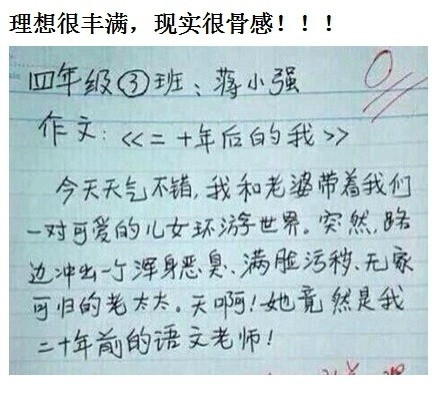 理想很丰满，现实很骨感！！！
四年级③班：蒋小强
0
作文：<<二十年后的我>>
今天天气不错，我和老婆带着我们
一对可爱的儿女环游世界。突然，路
边冲出一个浑身恶臭、满脸污秽、无家
可归的老太太。天啊！她竟然是我
二十年前的语文老师！